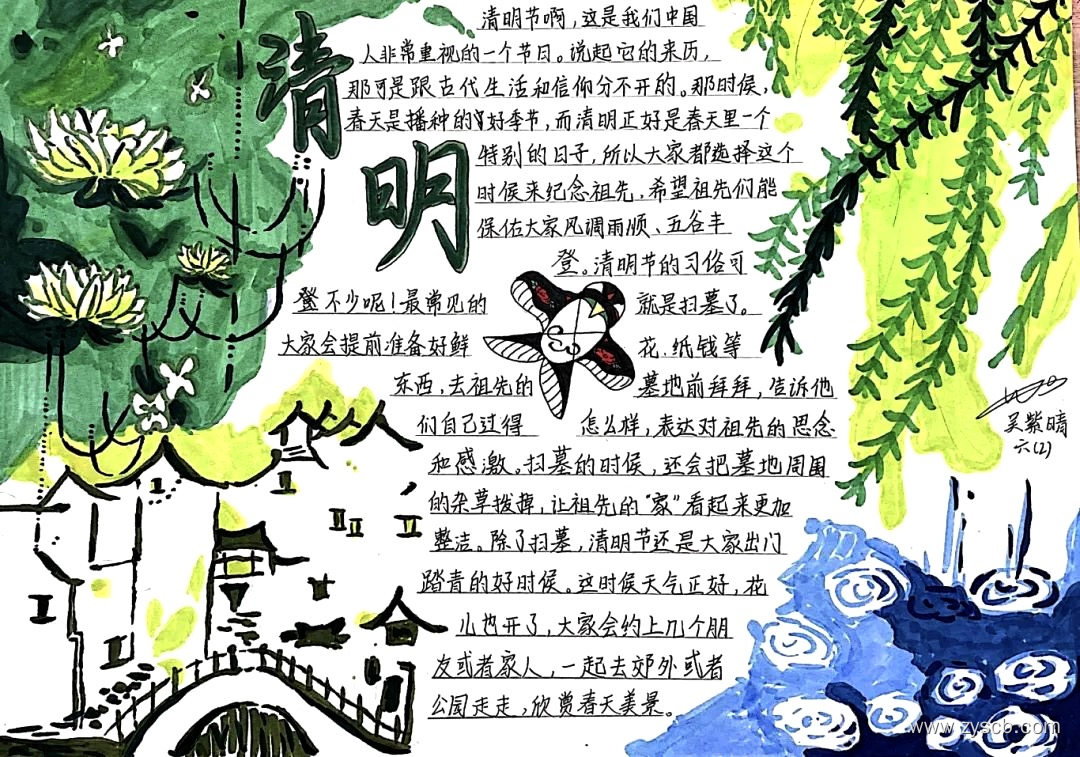 清明
清明节啊，这是我们中国
人非常重视的一个节日。说起它的来历，
那可是跟古代生活和信仰分不开的。那时候，
春天是播种的好季节，而清明正好是春天里一个
特别的日子，所以大家都选择这个
时候来纪念祖先，希望祖先们能
保佑大家风调雨顺、五谷丰
登。清明节的习俗可
不少呢！最常见的 就是扫墓了。
大家会提前准备好鲜 花、纸钱等
东西，去祖先的 墓地前拜拜，告诉他
们自己过得 怎么样，表达对祖先的思念
和感激。扫墓的时候，还会把墓地周围
的杂草拨掉，让祖先的“家”看起来更加
整洁。除了扫墓，清明节还是大家出门
踏青的好时候。这时候天气正好，花
儿也开了，大家会约上几个朋
友或者家人，一起去郊外或者
公园走走，欣赏春天美景。
吴紫晴
六(2)
www.zyscb.com